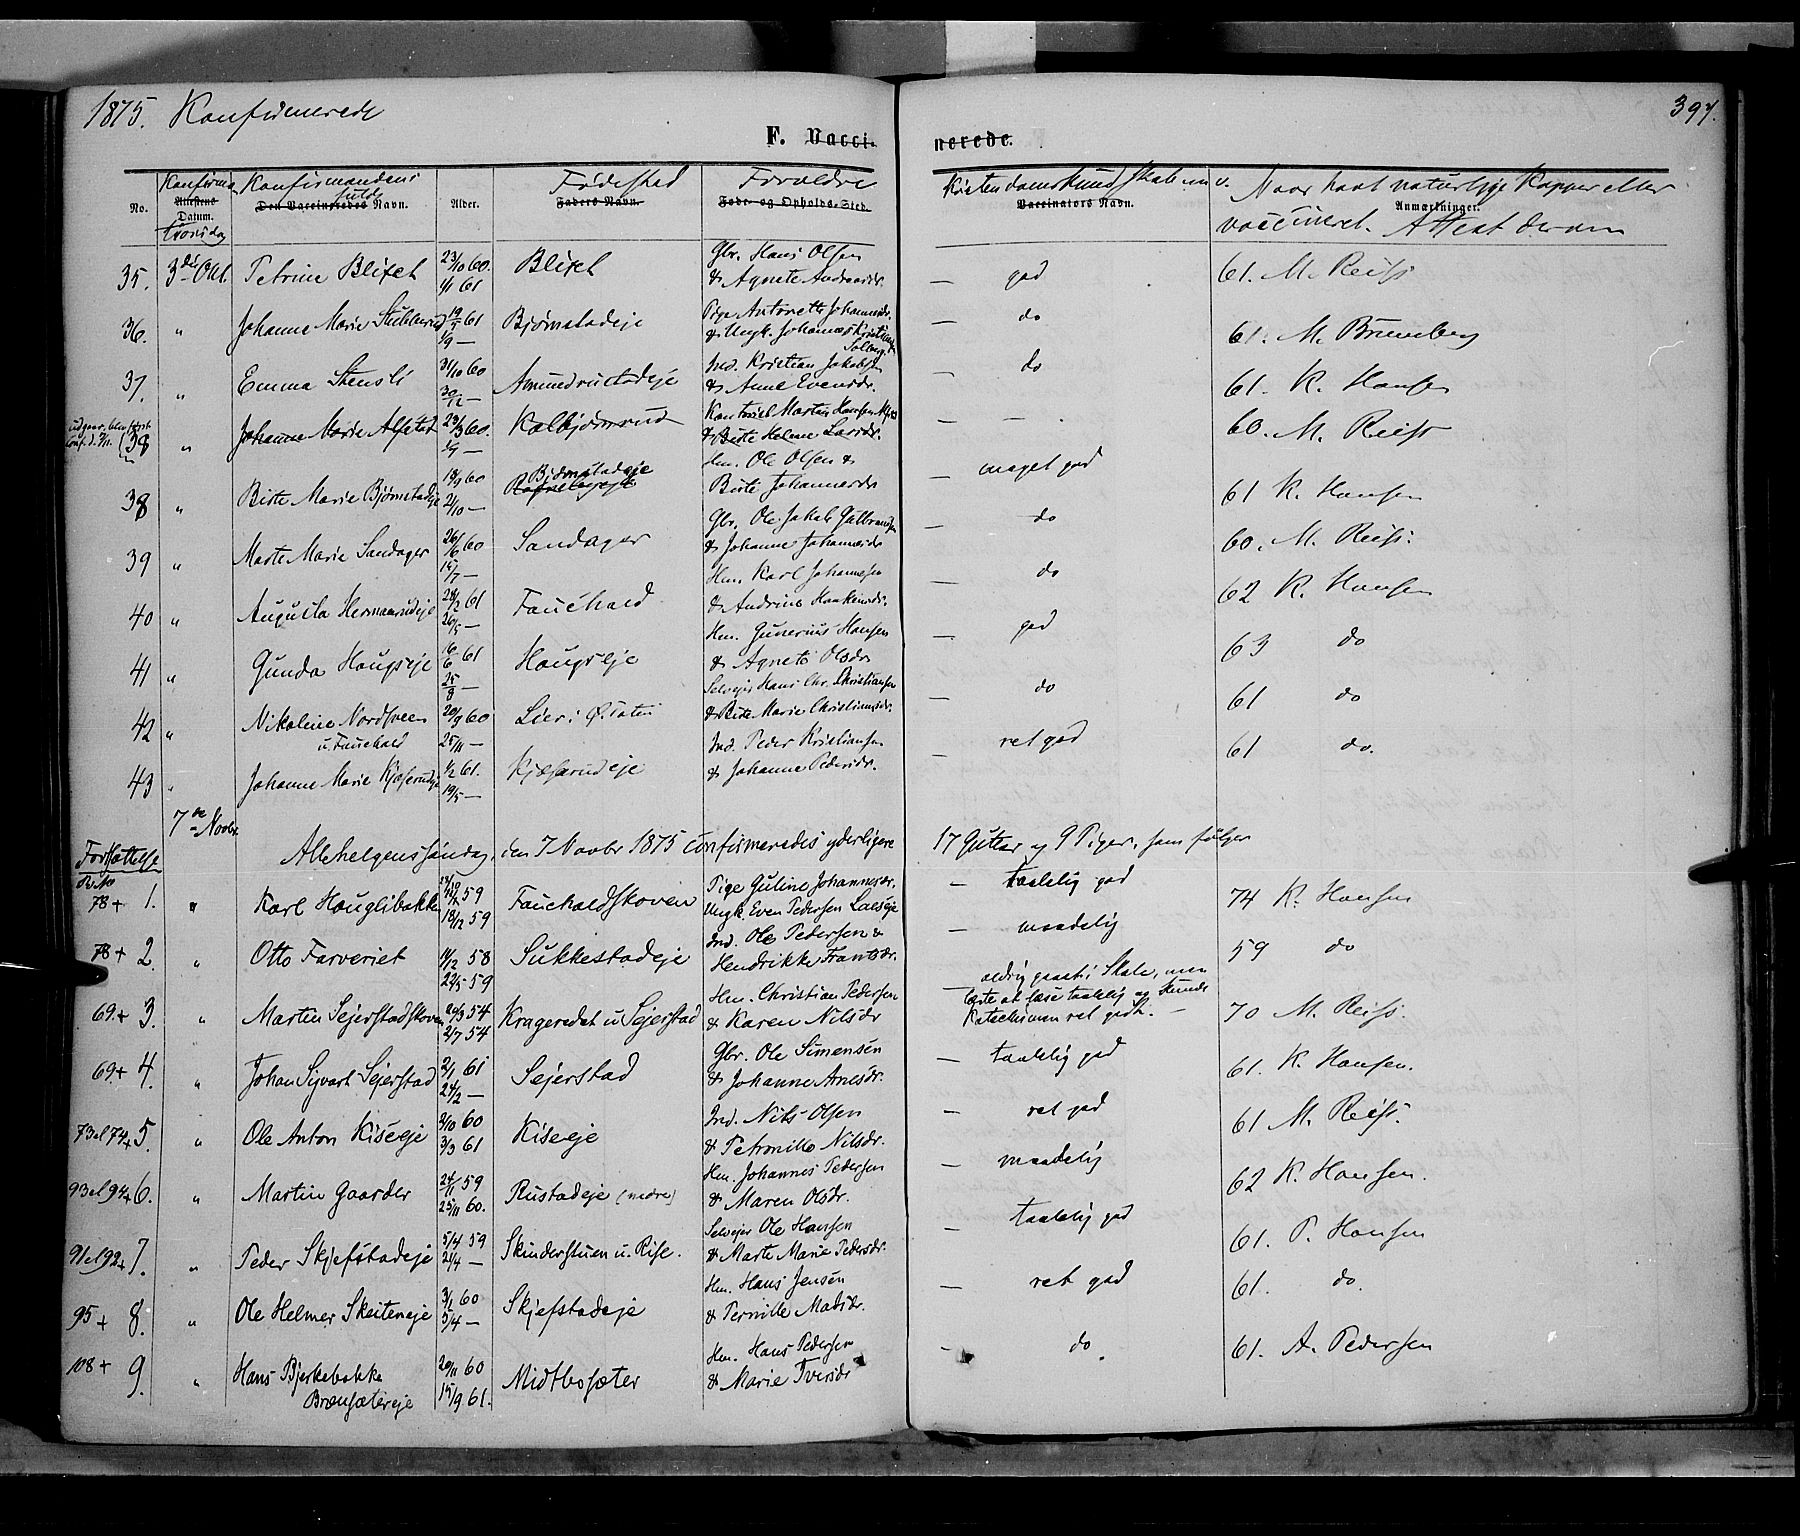 1875. Konfirmerede
397.
F. Vacci-
nerede.
No.
Konfirma
Attestens
Datum.
Konfirmandens
fulde
Den Vaccineredes Navn.
Alder.
Fødestad
Faders Navn.
Forældre
Føde- og Opholds-Sted.
Kristendomskundskab m. v.
Vaccinators Navn.
Naar havt naturlige Kopper eller
Anmærkninger.
vaccineret. Attest derom
35. 3die Okt. Petrine Blixet 23/10 60. Blixet Gbr. Hans Olsen — god 61. M. Reiss
1/1 61 & Agnete Andreasdr.
36. " Johanne Marie Stubberud 19/5 61 Bjørnstadeje Pige Antonette Johannesdr. — do 61. M. Brunberg
1/9 — & Ungk. Johannes Kristians.
Solberg.
37. " Emma Stensli 31/10 60 Amundrustadeje Ind. Kristian Jakobsen — do 61. K. Hansen
30/12 — & Anne Evensdr.
38 " Johanne Marie Alfstad 29/3 60. Kolbjørnrud Martin Hansen — — 60. M. Reiss
1/7 — & Birte Helene Larsdr.
38 " Birte Marie Bjørnstadeje 18/9 60 Bjørnstadeje Hm. Ole Olsen & — meget god 61 K. Hansen
2/10 — Birte Johannesdr
39 " Marte Marie Sandager 26/6 60 Sandager Gbr. Ole Jakob Gulbrandsen — do 60. M. Reiss.
15/7 — & Johanne Johannesdr
40 " Augusta Hermanrudeje 28/2 61 Fauchald Hm. Karl Johannesen — do 62 K. Hansen
26/5 — & Andrine Haakensdr.
41 " Gunda Haugseje 16/6 61 Haugseje Hm. Gunerius Hansen — god 63 do
25/8 — & Agnete Olsdr
42 " Nikoline Nordsveen 20/9 60 Lier i Ø. Toten Selvejer Hans Chr. Christiansen — do 61 do
u. Fauchald 25/11 — & Birte Marie Christiansdr.
43 " Johanne Marie Kjøserudeje 1/2 61. Kjøserudeje Ind. Peder Kristiansen — ret god 61 do.
19/5 — & Johanne Pedersdr.
7de Novbr
Fortsættelse Allehelgenssøndag, den 7 Novbr 1875 confirmeredes yderligere 17 Gutter og 9 Piger, som følger
78+ 1. " Karl Hauglibakken 59 Fauchaldskoven Pige Guline Johannesdr. — taalelig god 74 K. Hansen
18/12 59 Ungk. Even Pedersen Laeseje
78+ 2. " Otto Farveriet 14/2 58 Sukkestadeje Ind. Ole Pedersen & — maadelig 59 do
22/5 59 Hendrikke Frantsdr.
69+ 3. " Martin Sejerstadskoven 20/3 54 Krageredet u Sejerstad Hm. Christian Pedersen — aldrig gaaet i Skole, men
2/7 54 & Karen Nilsdr lærte at læse taalelig og kunde
Katechismen ret godt. — 70 M. Reiss.
69+ 4. " Johan Sigvart Sejerstad 2/1 61 Sejerstad Gbr. Ole Simensen — taalelig god 61. K. Hansen.
24/2 — & Johanne Arnesdr.
73 el 74+ 5. " Ole Anton Kiseeje 3/10 60 Kiseeje Ind. Nils Olsen — ret god 61 M. Reiss.
3/3 61 & Petronille Nilsdr.
93 el 94+ 6. " Martin Gaarder 24/11 59 Rustadeje (nedre) Hm. Johannes Pedersen — maadelig 62 K. Hansen.
25/11 60. & Maren Olsdr.
91 el 92+ 7. " Peder Skjefstadeje 5/4 59 Skinderstuen u. Rise. Selvejer Ole Hansen — taalelig god 61. P. Hansen
21/4 — & Marte Marie Pedersdr.
95+ 8. " Ole Helmer Skeiteneje 3/2 60 Skjefstadeje Hm. Hans Jensen — ret god 61. do.
5/4 — & Pernille Madsdr.
108+ 9. " Hans Bjerkebakke 20/11 60 Midtbosæter Hm. Hans Pedersen — do. 61. A. Pedersen
Brænsætereje 15/9 61. & Marie Iversdr